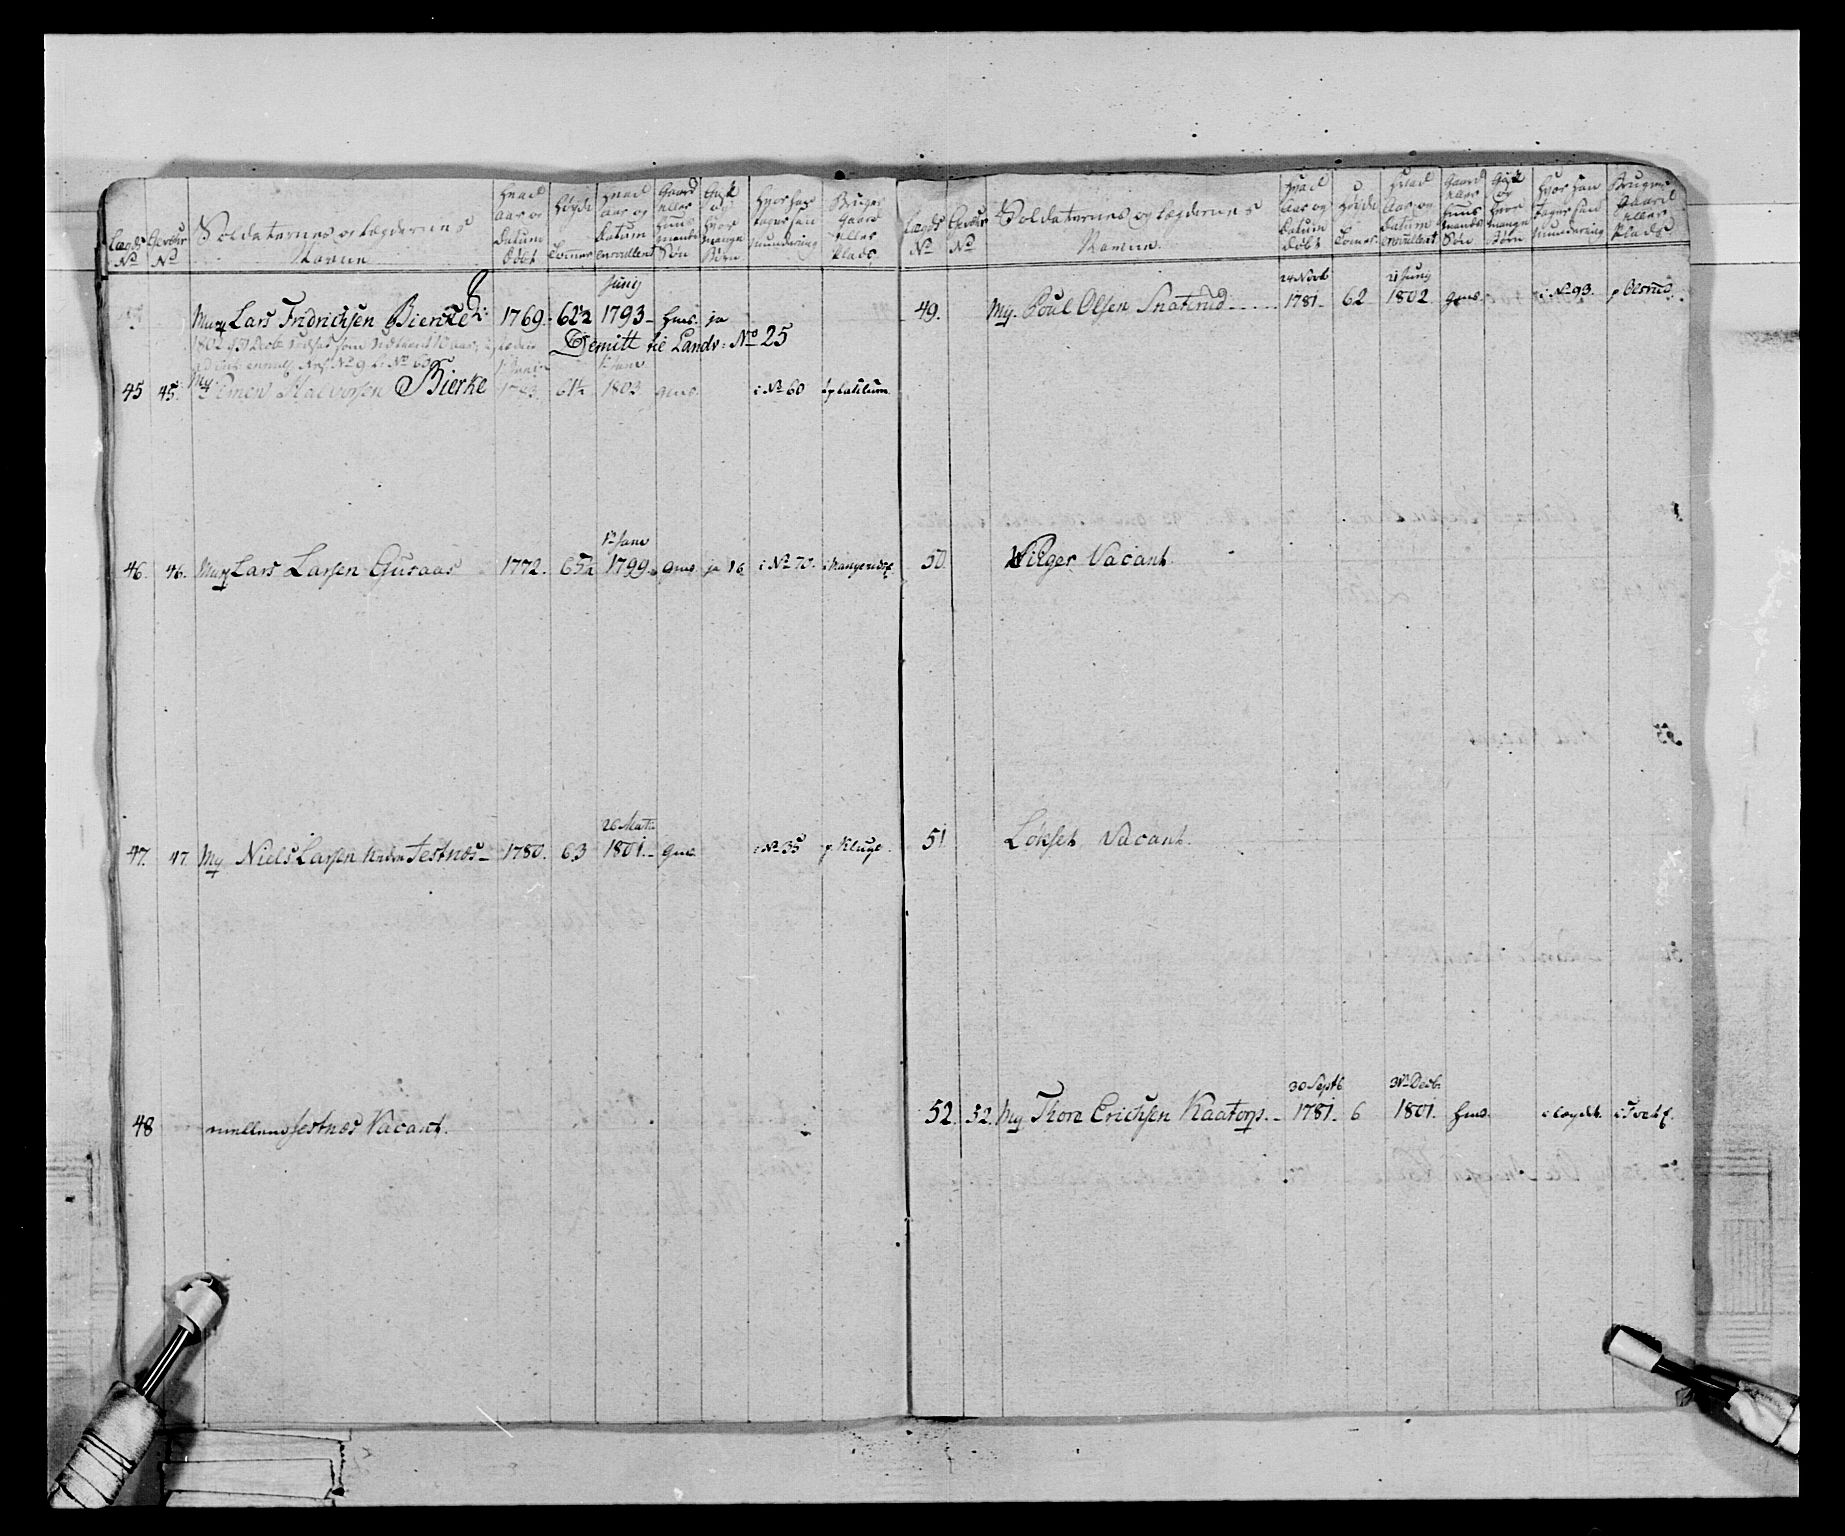 Lægds No
Gevær No
Soldaternes og Lægdernes Navne
Hvad Aar og Datum Født
Høyde Tommer
Hvad Aar og Datum enroullert
Gaard eller Huusmands Søn
Gift og Hvor mange Børn
Hvor han tager sin Mundering
Bruger Gaard eller Plads
Musq Lars Fridrichsen Biercke 1769. 62½ Junij 1793 - hms. ja
Demitt til Landv: No 25
45 45. Mq Simen Halvorsen Bierke 1783. 61½ 1 June 1803 gms. i No 60
46. 46. Musq Lars Larsen Gusaas 1772. 65½ 1 June 1799. gms ja 16 i No 70.
47. 47 Mq Niels Larsen Testnes - 1780. 63 1801. - gms. i No 35 p Kluge.
48 mellem Testnes Vacant.
Lægds No
Gevær No
Soldaternes og Lægdernes Navne
Hvad Aar og Datum Født
Høyde Tommer
Hvad Aar og Datum enroullert
Gaard eller Huusmands Søn
Gift og Hvor mange Børn
Hvor han tager sin Mundering
Bruger Gaard eller Plads
49. Mq. Poul Olsen Snaterud - 24 Novb 1781. 62 21 Junij 1802. gms. i No 93. p Olsrud.
50. Vilger Vacant
51 Lokset Vacant.
52. 52. Mq Thore Erichsen Kaatorp. - 30 Septb 1781. 6 31 Decb. 1801. hms. i Lægdet.